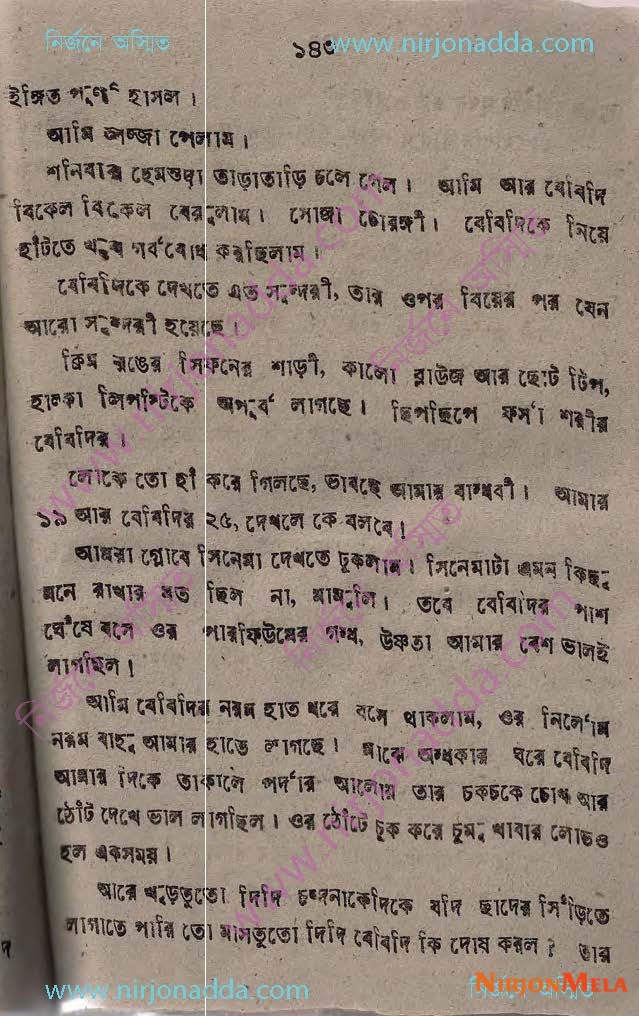 নির্জনে অস্মিত
১৪৩ www.nirjonadda.com
ইঙ্গিত পূর্ণ হাসল।
আমি লজ্জা পেলাম।
শনিবার হেমন্তদা তাড়াতাড়ি চলে গেল। আমি আর বেবিদি
বিকেল বিকেল বেরুলাম। সোজা চৌরঙ্গী। বেবিদিকে নিয়ে
হাঁটতে খুব গর্ববোধ করছিলাম।
বেবিদিকে দেখতে এত সুন্দরী, তার ওপর বিয়ের পর যেন
আরো সুন্দরী হয়েছে।
ক্রিম রঙের সিফনের শাড়ী, কালো ব্লাউজ আর ছোট টিপ,
হাল্কা লিপস্টিকে অপূর্ব লাগছে। ছিপছিপে ফর্সা শরীর
বেবিদির।
লোকে তো হাঁ করে গিলছে, ভাবছে আমার বান্ধবী। আমার
১৯ আর বেবিদির ২৫, দেখলে কে বলবে!
আমরা গ্লোবে সিনেমা দেখতে ঢুকলাম। সিনেমাটা এমন কিছু
মনে রাখার মত ছিল না, মামুলি। তবে বেবিদির পাশ
ঘেঁষে বসে ওর পারফিউমের গন্ধ, উষ্ণতা আমার বেশ ভালই
লাগছিল!
আমি বেবিদির নরম হাত ধরে বসে থাকলাম, ওর নির্লোম
নরম বাহু আমার হাতে লাগছে। মাঝে অন্ধকার ঘরে বেবিদি
আমার দিকে তাকালে পর্দার আলোয় তার চকচকে চোখ আর
ঠোঁট দেখে ভাল লাগছিল। ওর ঠোঁটে চুক করে চুমু খাবার লোভও
হল একসময়।
আরে খুড়তুতো দিদি চন্দনাকেদিকে যদি ছাদের সিঁড়িতে
লাগাতে পারি তো মাসতুতো দিদি বেবিদি কি দোষ করল? তার
www.nirjonadda.com
নির্জনে অস্মিত
NIRJONMELA